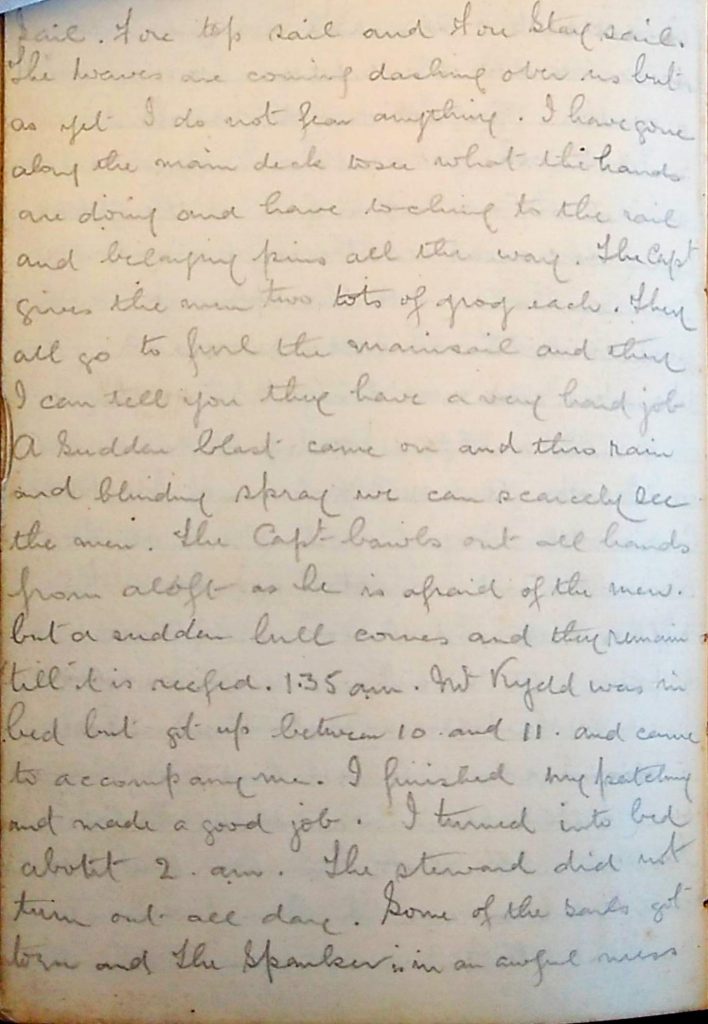 Sail. Fore top sail and Fore Stay sail.
The waves are coming dashing over us but
as yet I do not fear anything. I have gone
along the main deck to see what the hands
are doing and have to cling to the rail
and belaying pins all the way. The Capt
gives the men two tots of grog each. They
all go to furl the mainsail and they
I can tell you they have a very hard job
A Sudden blast came on and thro rain
and blinding spray we can scarcely see
the men. The Capt bawls out all hands
from aloft as he is afraid of the men.
but a sudden lull comes and they remain
till it is reefed. 1.35 am. Mr Kydd was in
bed but got up between 10 and 11. and came
to accompany me. I finished my patching
and made a good job. I turned into bed
about 2. am. The steward did not
turn out all day. Some of the sails got
torn and The Spanker is in an awful mess